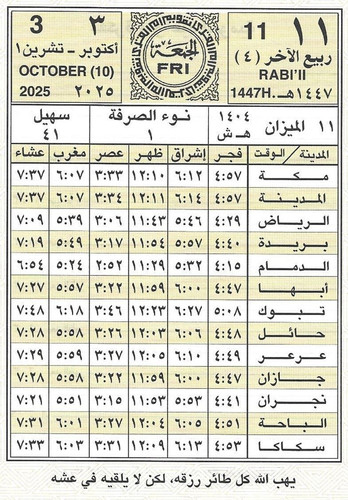 11 ١١
ربيع الآخر (٤)
RABI'II
1447H. ١٤٤٧هـ
الجمعة
FRI
3 ٣
أكتوبر - تشرين ١
OCTOBER (10)
2025 ٢٠٢٥
١١ الميزان ١٤٠٤ هـ ش
نوء الصرفة
١
سهيل
٤١
المدينة / الوقت فجر إشراق ظهر عصر مغرب عشاء
مكة ٤:٥٧ ٦:١٢ ١٢:١٠ ٣:٣٣ ٦:٠٧ ٧:٣٧
المدينة ٤:٥٧ ٦:١٤ ١٢:١١ ٣:٣٤ ٦:٠٧ ٧:٣٧
الرياض ٤:٢٩ ٥:٤٦ ١١:٤٣ ٣:٠٦ ٥:٣٩ ٧:٠٩
بريدة ٤:٤٠ ٥:٥٧ ١١:٥٤ ٣:١٧ ٥:٤٩ ٧:١٩
الدمام ٤:١٥ ٥:٣٢ ١١:٢٩ ٢:٥٢ ٥:٢٤ ٦:٥٤
أبها ٤:٤٧ ٦:٠٠ ١١:٥٩ ٣:٢٢ ٥:٥٧ ٧:٢٧
تبوك ٥:٠٨ ٦:٢٧ ١٢:٢٣ ٣:٤٦ ٦:١٨ ٧:٤٨
حائل ٤:٤٨ ٦:٠٦ ١٢:٠٣ ٣:٢٦ ٥:٥٨ ٧:٢٨
عرعر ٤:٤٩ ٦:١٠ ١٢:٠٥ ٣:٢٧ ٥:٥٩ ٧:٢٩
جازان ٤:٤٧ ٦:٠٠ ١١:٥٩ ٣:٢٢ ٥:٥٨ ٧:٢٨
نجران ٤:٤٠ ٥:٥٣ ١١:٥٢ ٣:١٥ ٥:٥١ ٧:٢١
الباحة ٤:٥١ ٦:٠٥ ١٢:٠٤ ٣:٢٧ ٦:٠١ ٧:٣١
سكاكا ٤:٥٣ ٦:١٣ ١٢:٠٩ ٣:٣١ ٦:٠٣ ٧:٣٣
يهب الله كل طائر رزقه، لكن لا يلقيه في عشه